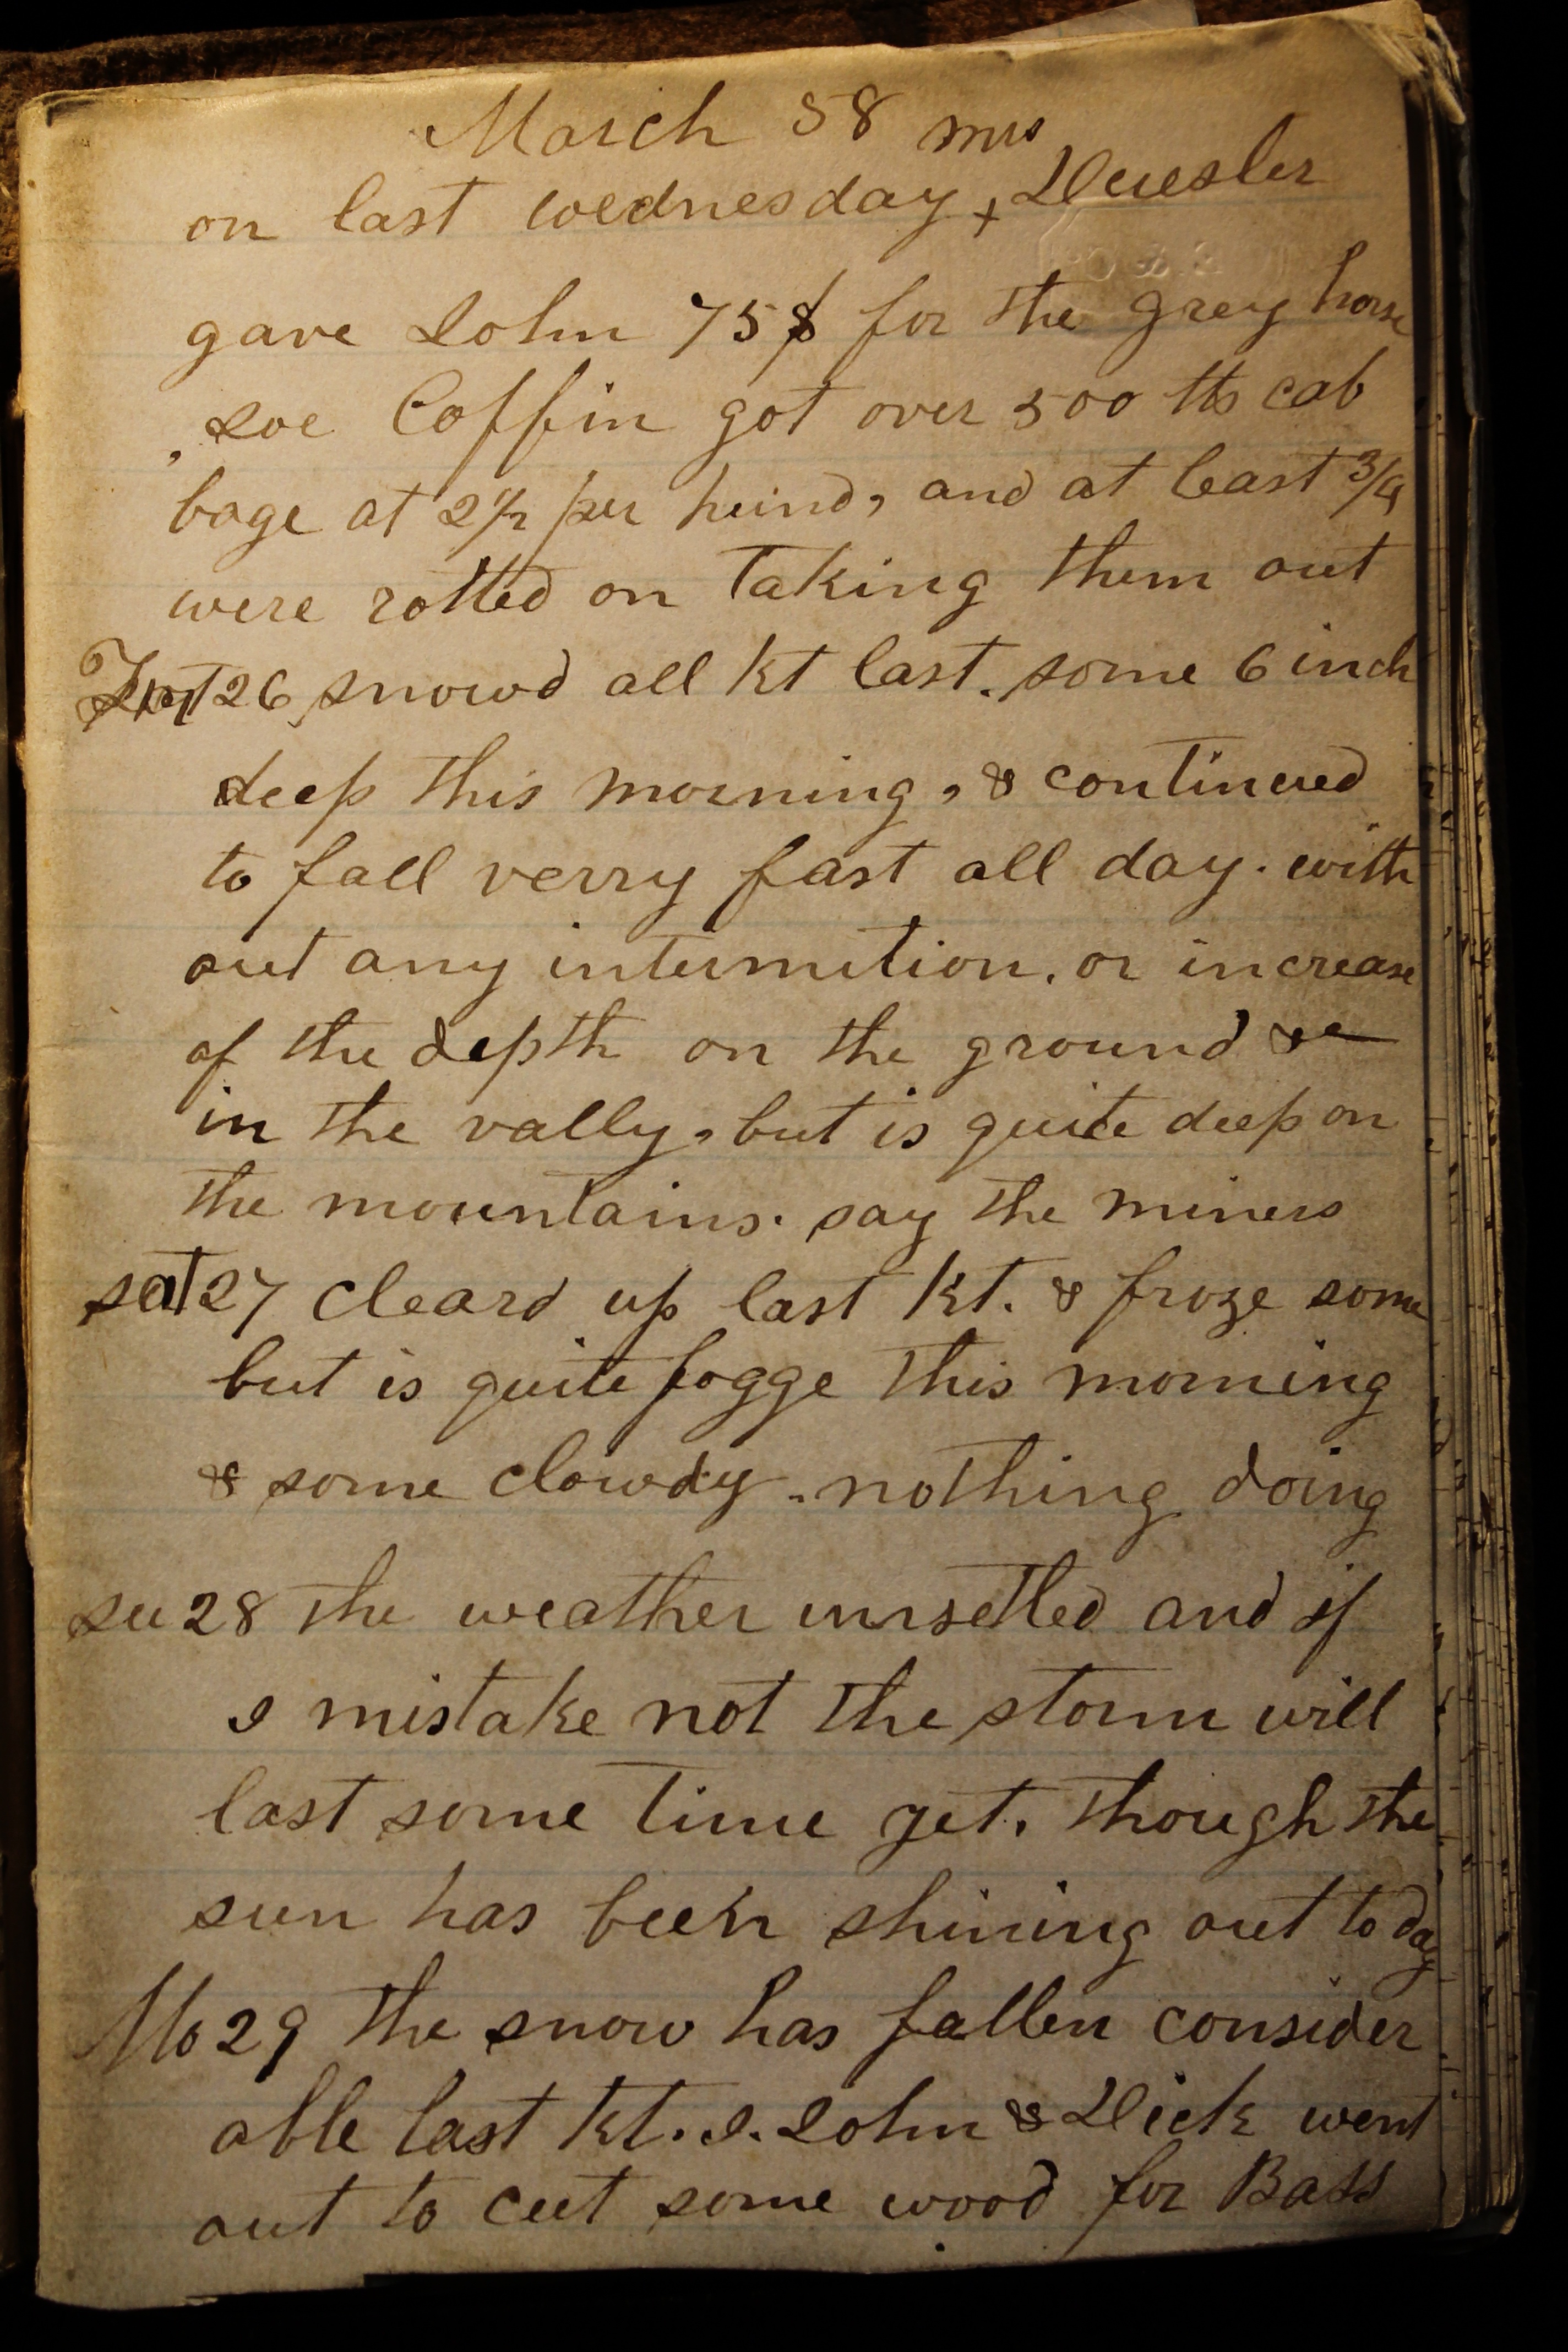 March 58 mrs
on last wednesday + Deusler
gave John 75$ for the grey horse
, Joe Coffin got over 500 lbs cab
bage at 2½ per hund, and at least 3/4
were rotted on taking them out
26 snowd all Nt last. some 6 inch
deep this morning, & continued
to fall verry fast all day. with
out any intermition. or increase
of the depth on the ground &c
in the vally, but is quite deep on
the mountains. say the miners
sat 27 cleard up last Nt. & froze some
but is quite fogge this morning
& some clowdy. nothing doing
su 28 the weather unsetled and if
I mistake not the storm will
last some time yet. though the
sun has been shining out to day
Mo 29 the snow has fallen consider
able last Nt. I. John & Dick went
out to cut some wood for Bass